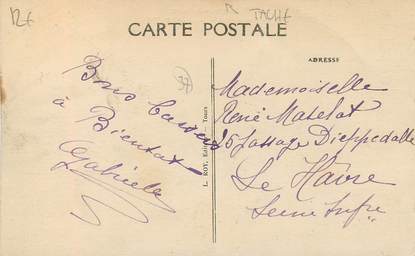 12€
TACHE
CARTE POSTALE
ADRESSE
Bons baisers
à Bientot
Gabriele
L. ROY, Edit Tours
Mademoiselle
Renée Matelat
35 passage Dieppedalle
Le Hâvre
Seine Infre